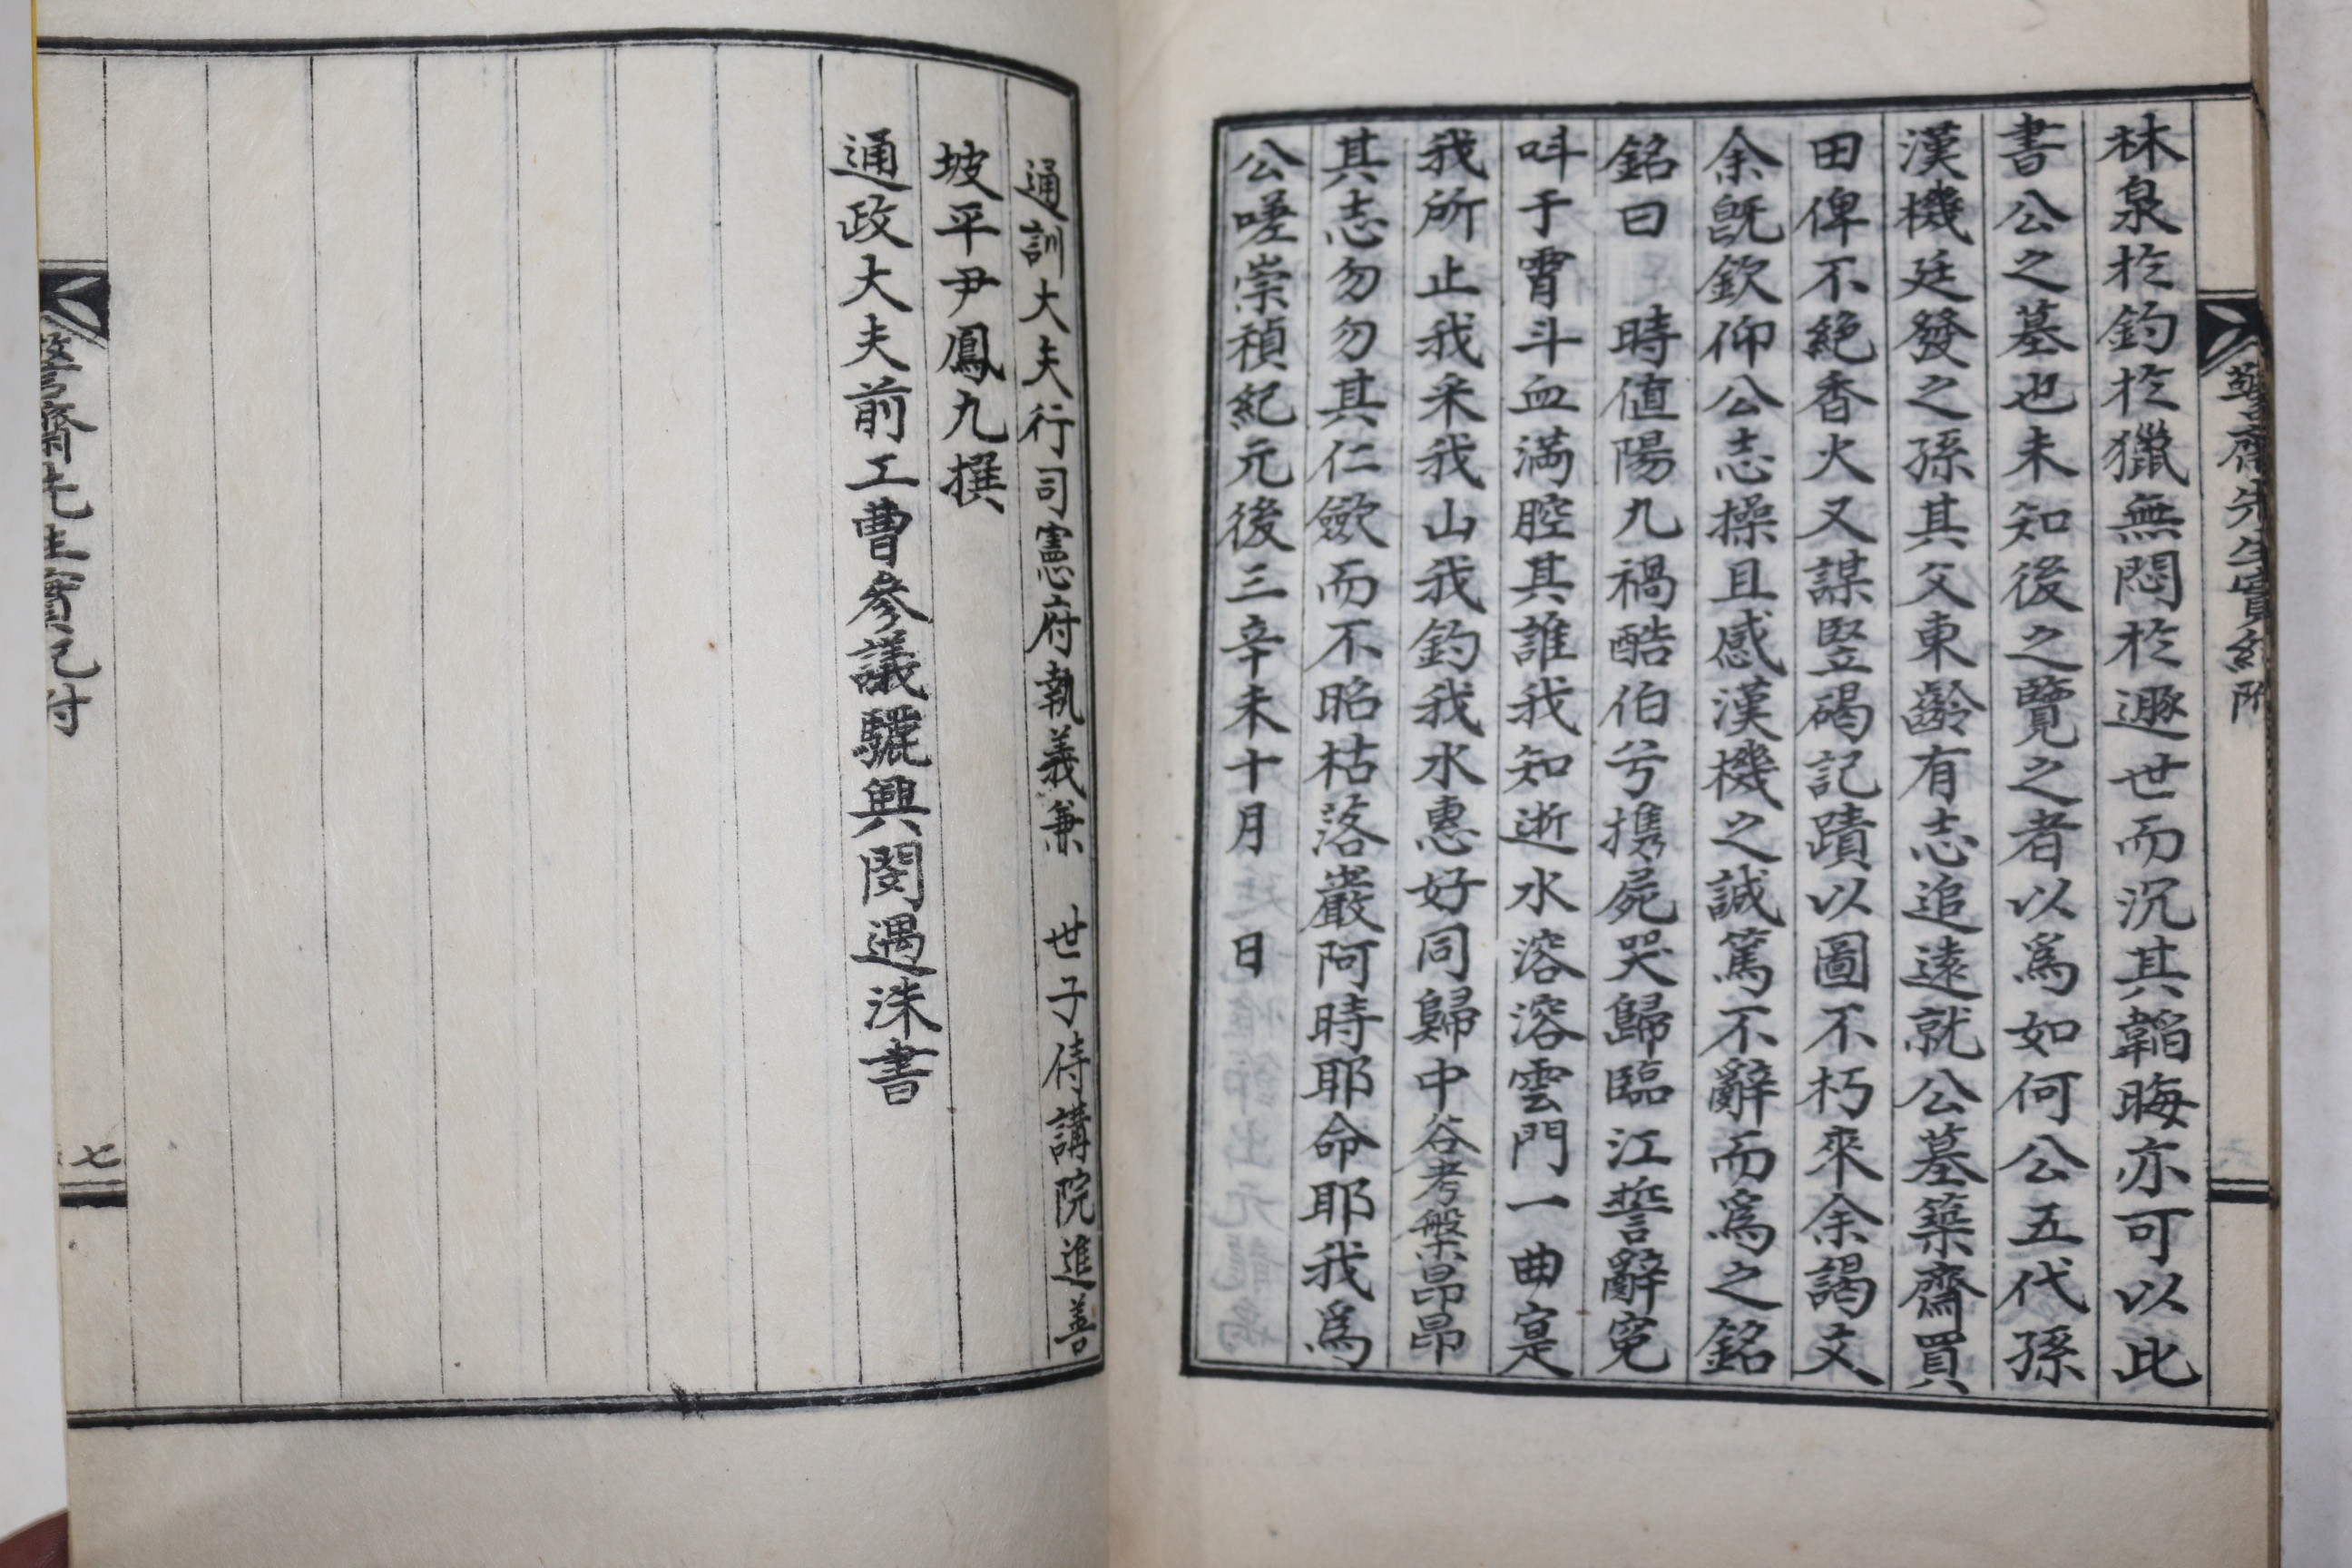 警齋先生實紀附
林泉於釣於獵無悶於遯世而沉其韜晦亦可以此
書公之墓也未知後之覽之者以爲如何公五代孫
漢機廷發之孫其父東齡有志追遠就公墓築齋買
田俾不絶香火又謀竪碣記蹟以圖不朽來余謁文
余旣欽仰公志操且感漢機之誠篤不辭而爲之銘
銘曰 時值陽九禍酷伯兮携屍哭歸臨江誓辭寃
呌于霄斗血满腔其誰我知逝水溶溶雲門一曲寔
我所止我采我山我釣我水惠好同歸中谷考槃昂昂
其志勿勿其仁歛而不昭枯落巖阿時耶命耶我爲
公嗟崇禎紀元後三辛未十月 日
通訓大夫行司憲府執義兼 世子侍講院進善
坡平尹鳳九撰
通政大夫前工曹參議驪興閔遇洙書
警齋先生實紀附
七